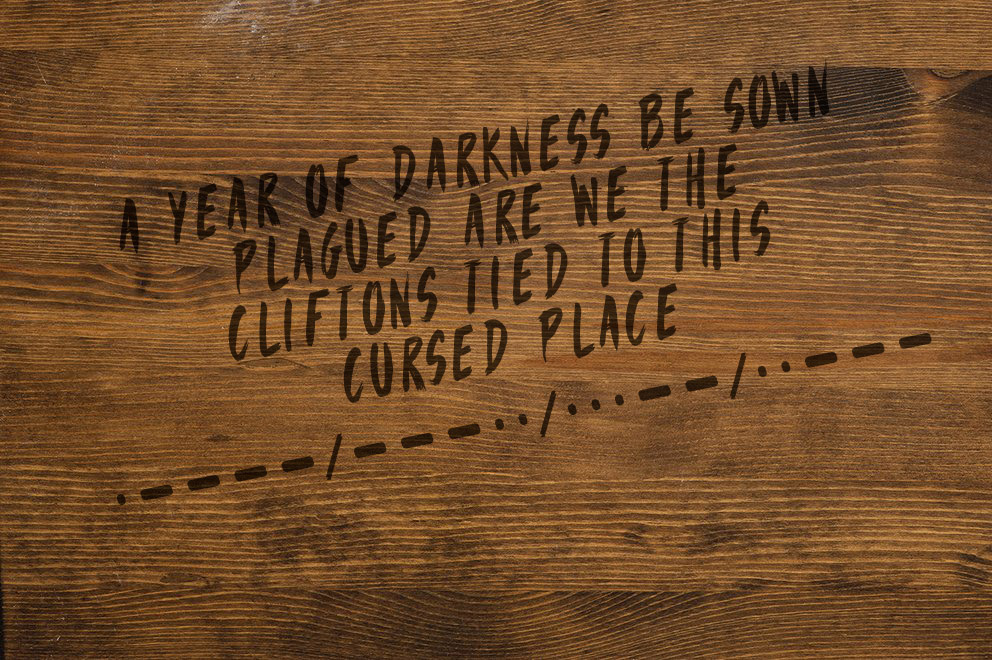 A YEAR OF DARKNESS BE SOWN
PLAGUED ARE WE THE
CLIFTONS TIED TO THIS
CURSED PLACE
·−−−−/−−−··/···−−/··−−−